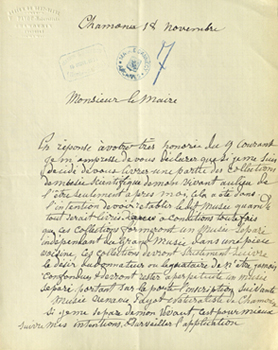 Chamonix 18 novembre
7
Monsieur le Maire
En réponse à votre très honorée du 9 courant
je m'empresse de vous déclarer que si je me suis
décidé de vous livrer une partie des collections
de mon vivant au lieu de
l'être seulement après moi, cela a été dans
l'intention de voir établir le dit Musée quand
tout serait livré à condition toutefois
que ces collections formeront un Musée séparé
indépendant du grand Musée dans une pièce
voisine, ces collections devront suivre
le désir du donateur ou légataire de n'être jamais
confondues et devront rester à perpétuité un Musée
séparé portant sur la porte l'inscription suivante
Musée Venance Payot naturaliste de Chamonix
Si je me sépare de mon vivant c'est pour mieux
suivre mes intentions, surveiller l'application